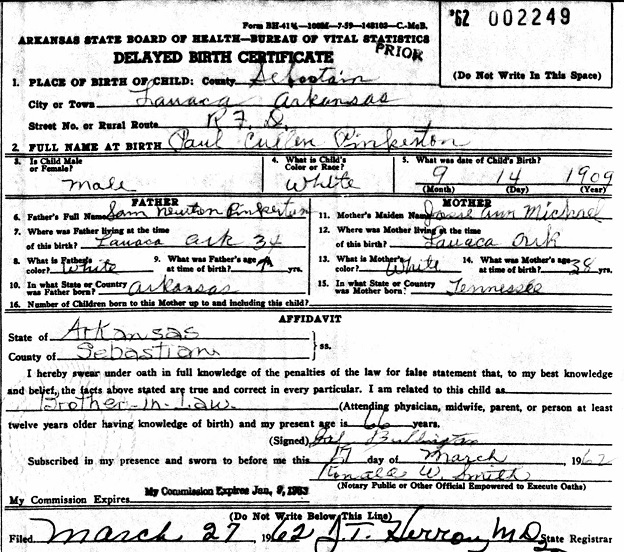 Form BH-41½—100M—7-59—148103—C.-McB.
'62 002249
ARKANSAS STATE BOARD OF HEALTH—BUREAU OF VITAL STATISTICS
DELAYED BIRTH CERTIFICATE PRIOR
(Do Not Write In This Space)
1. PLACE OF BIRTH OF CHILD: County Sebastain
City or Town Lavaca Arkansas
Street No. or Rural Route R. F. D.
2. FULL NAME AT BIRTH Paul Cullen Pinkerton
3. Is Child Male or Female? Male
4. What is Child's Color or Race? White
5. What was date of Child's Birth? 9 14 1909
(Month) (Day) (Year)
FATHER
6. Father's Full Name Sam Newton Pinkerton
7. Where was Father living at the time
of this birth? Lavaca Ark 34
8. What is Father's color? White
9. What was Father's age at time of birth? yrs.
10. In what State or Country was Father born? Arkansas
MOTHER
11. Mother's Maiden Name Ann Michael
12. Where was Mother living at the time
of this birth? Lavaca Ark
13. What is Mother's color? White
14. What was Mother's age at time of birth? 38 yrs.
15. In what State or Country was Mother born? Tennessee
16. Number of Children born to this Mother up to and including this child?
AFFIDAVIT
State of Arkansas
County of Sebastian
ss.
I hereby swear under oath in full knowledge of the penalties of the law for false statement that, to my best knowledge
and belief, the facts above stated are true and correct in every particular. I am related to this child as
Brother-in-Law (Attending physician, midwife, parent, or person at least
twelve years older having knowledge of birth) and my present age is 66 years.
(Signed) Bullington
Subscribed in my presence and sworn to before me this 17 day of March 1962
W. Smith
(Notary Public or Other Official Empowered to Execute Oaths)
My Commission Expires My Commission Expires Jan. 9, 1963
(Do Not Write Below This Line)
Filed March 27 1962 J. T. Herron, M.D. State Registrar